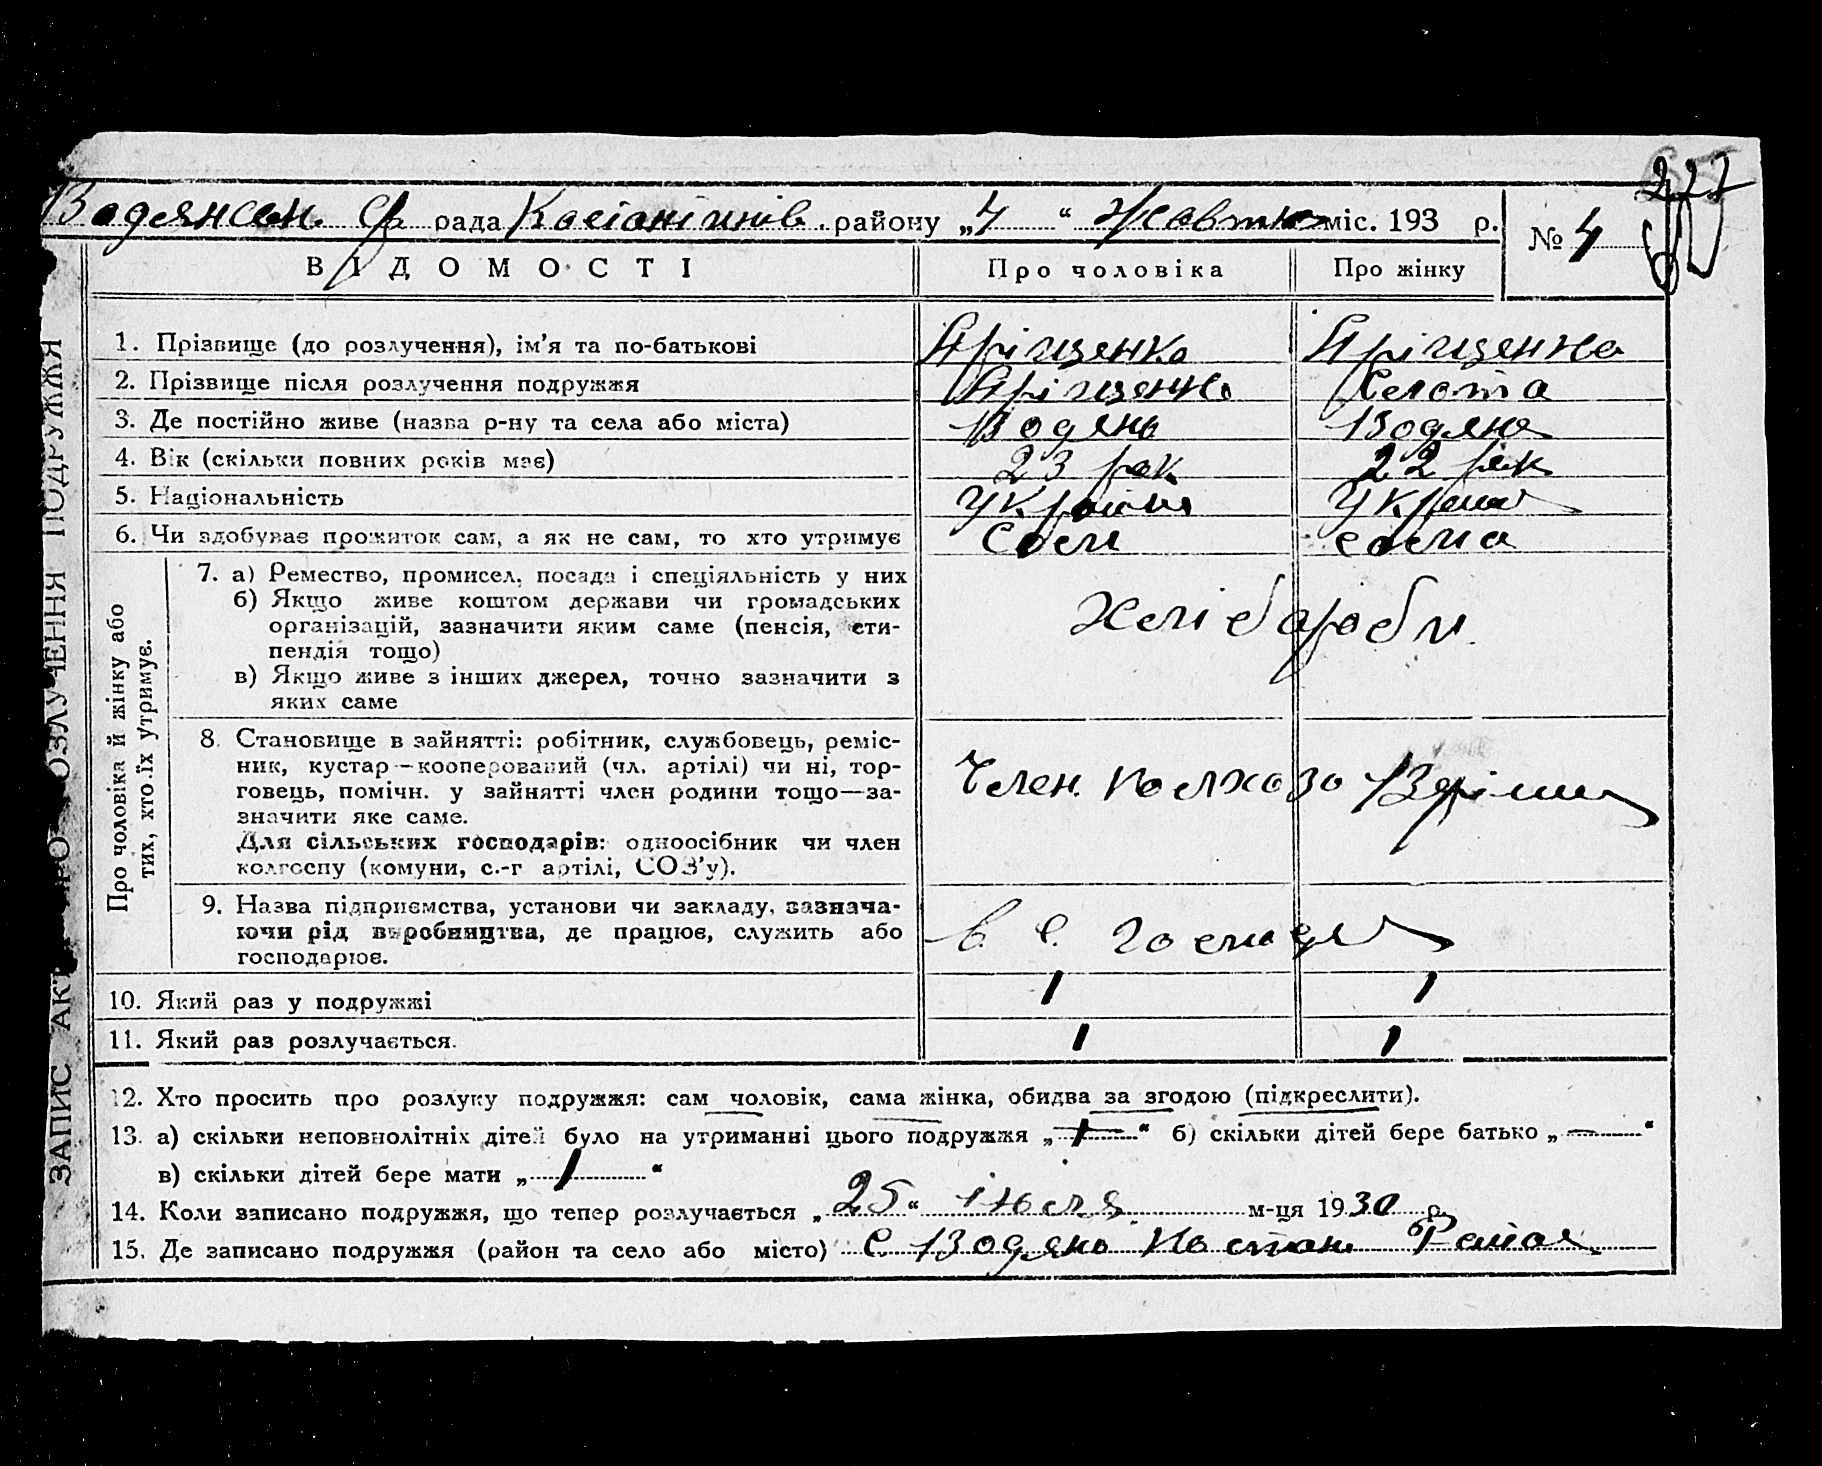 227
Водянськ. Ср рада Костянтинів. району „4“ Жовтня міс. 193 р. № 4
ВІДОМОСТІ Про чоловіка Про жінку
1. Прізвище (до розлучення), ім’я та по-батькові Яріщенко Яріщенко
2. Прізвище після розлучення подружжя Яріщенко
3. Де постійно живе (назва р-ну та села або міста) Водянь Водяна
4. Вік (скільки повних років має) 23 рок 22 рік
5. Національність
6. Чи здобуває прожиток сам, а як не сам, то хто утримує Сам сама
Про чоловіка й жінку або
тих, хто їх утримує.
7. а) Ремество, промисел, посада і спеціяльність у них
б) Якщо живе коштом держави чи громадських
організацій, зазначити яким саме (пенсія, сти-
пендія тощо)
в) Якщо живе з інших джерел, точно зазначити з
яких саме
Хлібороби
8. Становище в зайнятті: робітник, службовець, реміс-
ник, кустар—кооперований (чл. артілі) чи ні, тор-
говець, помічн. у зайнятті член родини тощо—за-
значити яке саме.
Для сільських господарів: одноосібник чи член
колгоспу (комуни, с.-г артілі, СОЗ’у).
Член. колхозо
9. Назва підприємства, установи чи закладу, зазнача-
ючи рід виробництва, де працює, служить або
господарює.
10. Який раз у подружжі 1 1
11. Який раз розлучається. 1 1
12. Хто просить про розлуку подружжя: сам чоловік, сама жінка, обидва за згодою (підкреслити).
13. а) скільки неповнолітніх дітей було на утриманні цього подружжя „1“ б) скільки дітей бере батько „—“
в) скільки дітей бере мати „1“
14. Коли записано подружжя, що тепер розлучається „25“ июля м-ця 1930 р.
15. Де записано подружжя (район та село або місто) С. Водяно Костян. Район
ЗАПИС АКТ ПРО РОЗЛУЧЕННЯ ПОДРУЖЖЯ